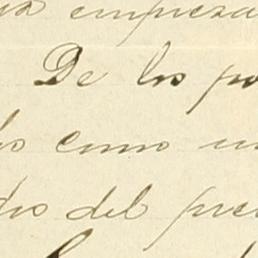 empieza
De los po
como un
del pre